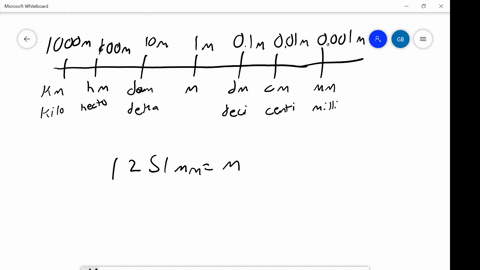 Microsoft Whiteboard
GB
1000m 100m 10m 1m 0.1m 0.01m 0.001m
Km hm dam m dm cm mm
Kilo hecto deka deci centi milli
1251 mm = m